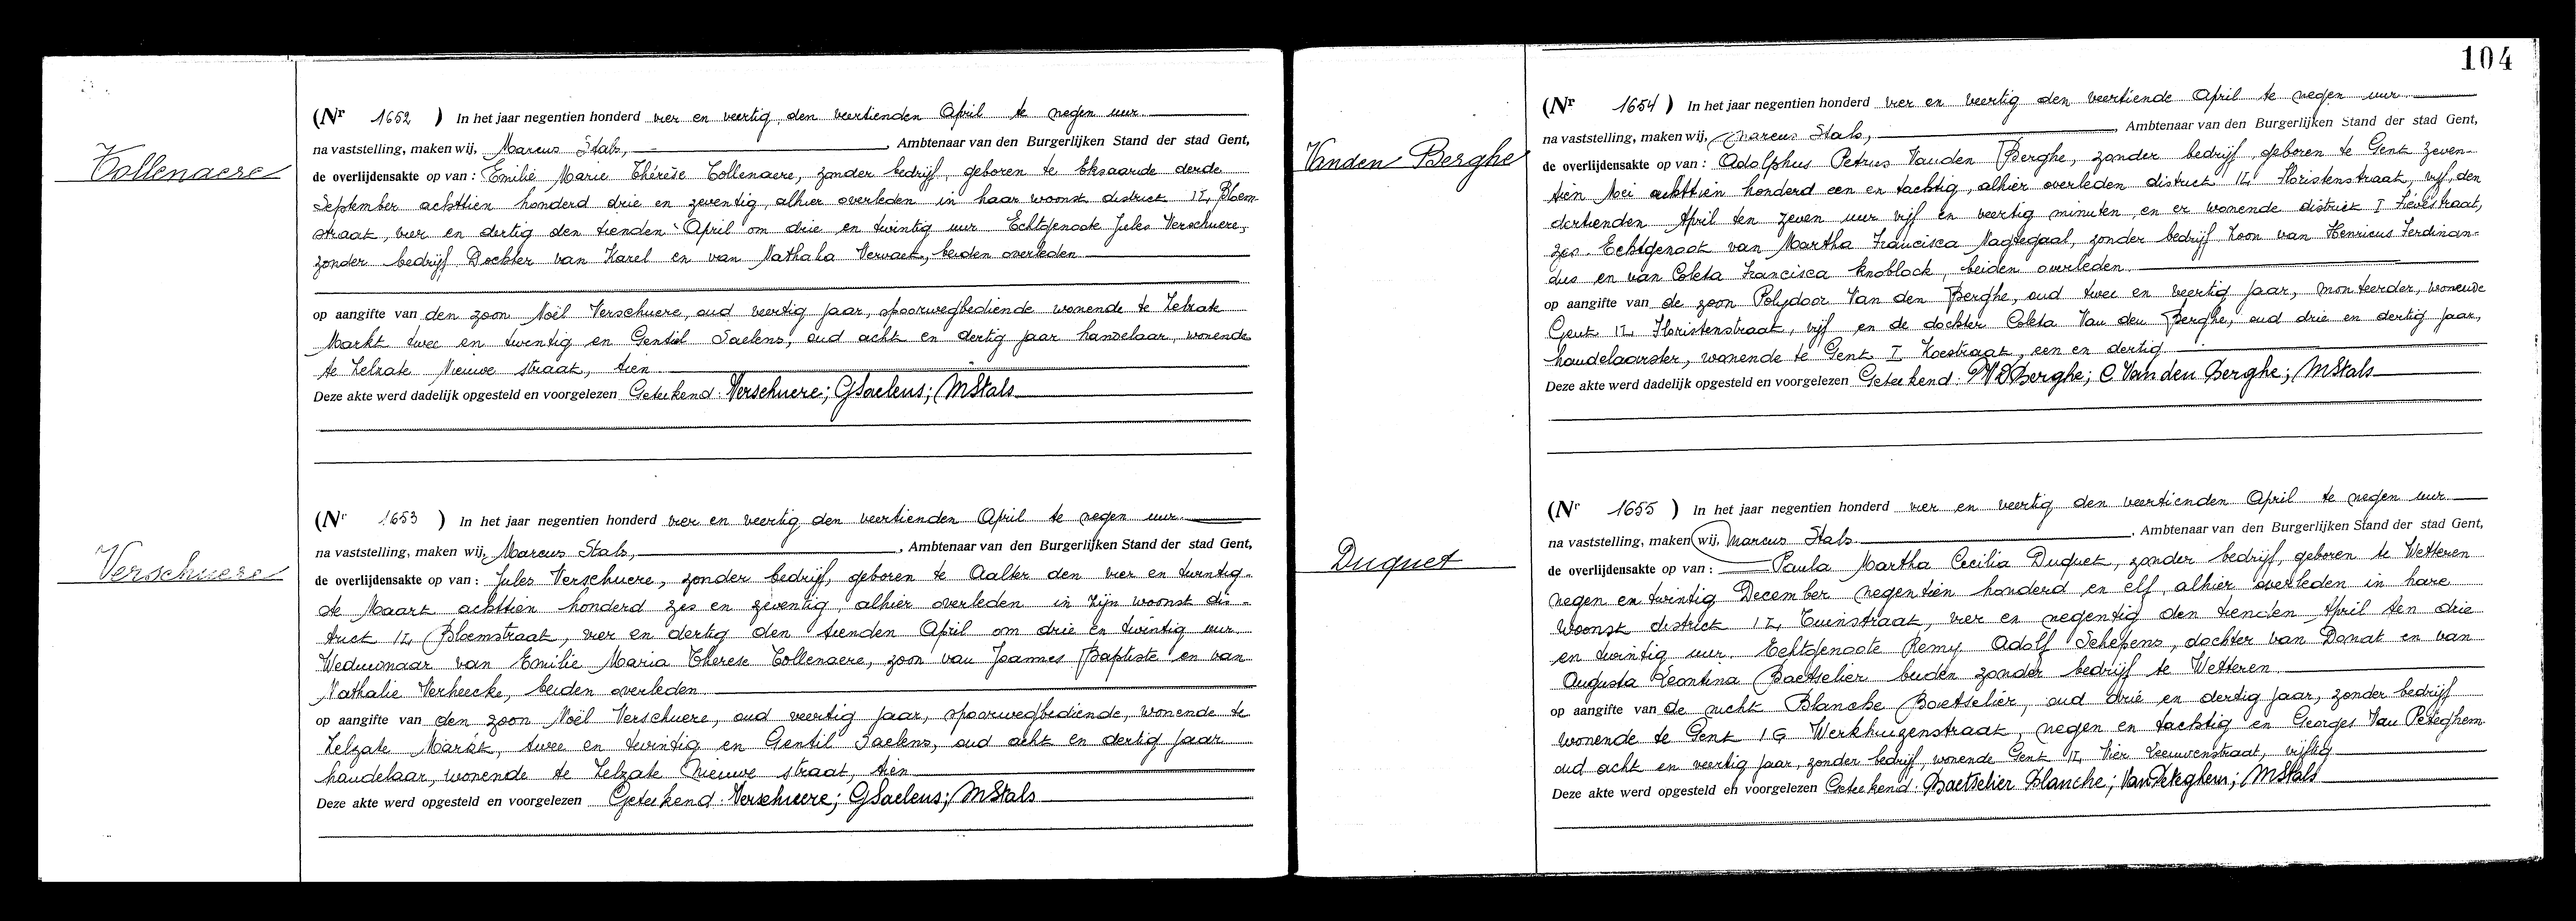 Collenaere
(Nr 1652 ) In het jaar negentien honderd vier en veertig den veertienden April te negen uur
na vaststelling, maken wij, Marcus Stals, , Ambtenaar van den Burgerlijken Stand der stad Gent,
de overlijdensakte op van : Emilie Marie Thérèse Collenaere, zonder bedrijf, geboren te Eksaarde derde
September achttien honderd drie en zeventig, alhier overleden in haar woonst district 12, Bloem-
straat, vier en dertig den tienden April om drie en twintig uur Echtgenoote Jules Verschuere,
zonder bedrijf Dochter van Karel en van Nathalia Vervaet, beiden overleden
op aangifte van den zoon Noël Verschuere, oud veertig jaar, spoorwegbediende wonende te Zelzate
Markt twee en twintig en Gentiel Saelens, oud acht en dertig jaar handelaar, wonende
te Zelzate Nieuwe straat, tien
Deze akte werd dadelijk opgesteld en voorgelezen Geteekend: Verschuere; GSaelens; MStals
Verschuere
(Nr 1653 ) In het jaar negentien honderd vier en veertig den veertienden April te negen uur
na vaststelling, maken wij, Marcus Stals, , Ambtenaar van den Burgerlijken Stand der stad Gent,
de overlijdensakte op van : Jules Verschuere, zonder bedrijf, geboren te Aalter den vier en twintig-
de Maart achttien honderd zes en zeventig, alhier overleden in zijn woonst dis-
trict 12, Bloemstraat, vier en dertig den tienden April om drie en twintig uur
Weduwnaar van Emilie Maria Therese Collenaere, zoon van Joannes Baptiste en van
Nathalie Verheecke, beiden overleden
op aangifte van den zoon Noël Verschuere, oud veertig jaar, spoorwegbediende, wonende te
Zelzate Markt, twee en twintig en Gentil Saelens, oud acht en dertig jaar
handelaar, wonende te Zelzate Nieuwe straat, tien
Deze akte werd opgesteld en voorgelezen Geteekend: Verschuere; GSaelens; MStals
104
Vanden Berghe
(Nr 1654 ) In het jaar negentien honderd vier en veertig den veertiende April te negen uur
na vaststelling, maken wij, Marcus Stals, , Ambtenaar van den Burgerlijken Stand der stad Gent,
de overlijdensakte op van : Adolphus Petrus Vanden Berghe, zonder bedrijf, geboren te Gent zeven-
tien Mei achttien honderd een en tachtig, alhier overleden district 12 Floristenstraat, vijf, den
dertienden April ten zeven uur vijf en veertig minuten, en er wonende district I Lievestraat,
zes. Echtgenoot van Martha Francisca Nagtegaal, zonder bedrijf Zoon van Henricus Ferdinan-
dus en van Coleta Francisca Knoblock, beiden overleden
op aangifte van de zoon Polydoor Van den Berghe, oud twee en veertig jaar, monteerder, wonende
Gent 12, Floristenstraat, vijf en de dochter Coleta Van den Berghe, oud drie en dertig jaar,
handelaarster, wonende te Gent I, Koestraat, een en dertig
Deze akte werd dadelijk opgesteld en voorgelezen Geteekend: PVDBerghe; C Van den Berghe; MStals
Duquet
(Nr 1655 ) In het jaar negentien honderd vier en veertig den veertienden April te negen uur
na vaststelling, maken wij, Marcus Stals. , Ambtenaar van den Burgerlijken Stand der stad Gent,
de overlijdensakte op van : Paula Martha Cecilia Duquet, zonder bedrijf, geboren te Wetteren
negen en twintig December negentien honderd en elf, alhier overleden in hare
woonst district 12, Tuinstraat, vier en negentig den tienden April ten drie
en twintig uur Echtgenoote Remy Adolf Schepens, dochter van Donat en van
Augusta Leontina Baetselier beiden zonder bedrijf te Wetteren
op aangifte van de nicht Blanche Baetselier, oud drie en dertig jaar, zonder bedrijf
wonende te Gent 16 Werkhuizenstraat, negen en tachtig en Georges Van Peteghem
oud acht en veertig jaar, zonder bedrijf, wonende Gent 12, Vier Leeuwenstraat, vijftig
Deze akte werd opgesteld en voorgelezen Geteekend: Baetselier Blanche; VanPeteghem; MStals